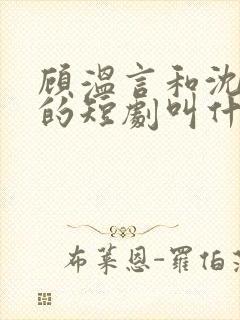 顾温言和沈
的短劇叫什
布莱恩-羅伯